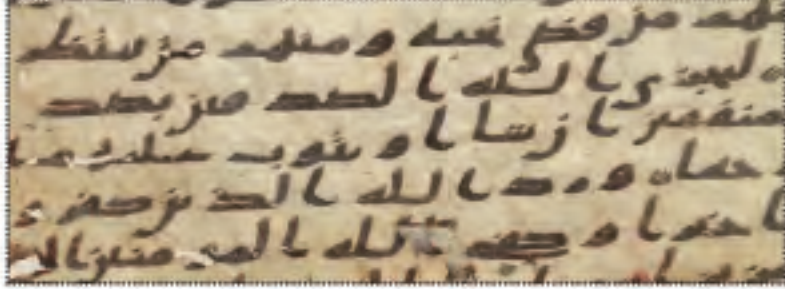 فمنهم من قضى نحبه ومنهم من ينتظر
ليجزي الله الصدقين بصد
منفقين ان شا او يتوب عليهم ا
رحيما ورد الله الذين كفرو
ا خيرا وكفى الله المومنين ال